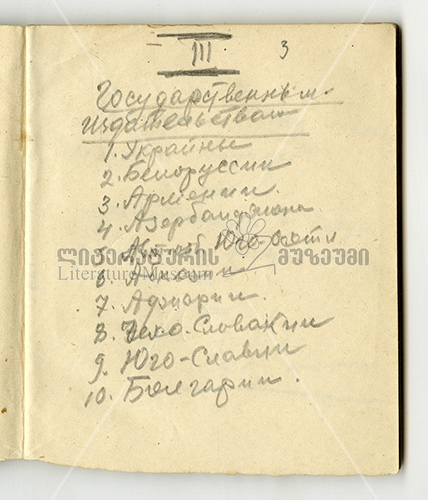 III 3
Государственным
издательствам
1. Украины
2. Белоруссии
3. Армении.
4. Азербайджана
5. Юго-
ლიტერატურის მუზეუმი
Literature Museum
6.
7. Аджарии.
8. Чехо-Словакии
9. Юго-Славии
10. Болгарии.